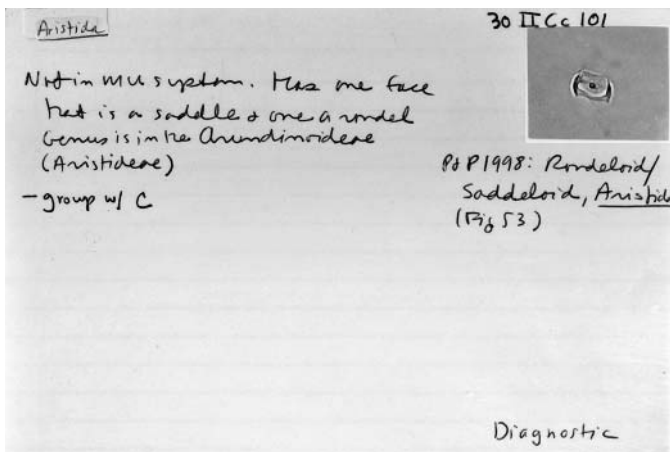 Aristida
30 II Cc 101
Not in MU system. Has one face
that is a saddle & one a rondel
Genus is in the Arundinoideae
(Aristideae)
- group w/ C
P & P 1998: Rondeloid/
Saddeloid, Aristida
(Fig 53)
Diagnostic